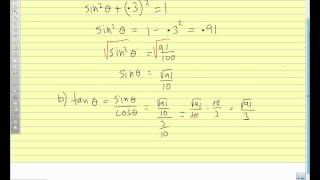 sin²θ + (.3)² = 1
sin²θ = 1 - .3² = .91
√sin²θ = √91/100
sin θ = √91/10
b) tan θ = sinθ/cosθ = √91/10 / 3/10 = √91/10 · 10/3 = √91/3